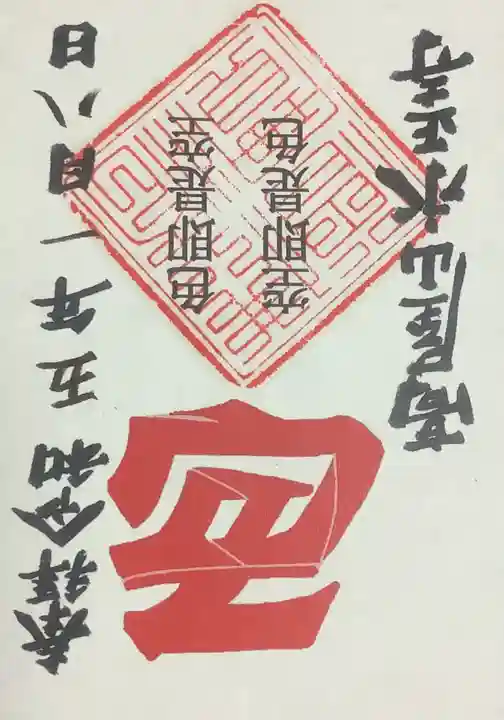 奉拝 令和五年一月八日
色即是空
空即是色
高屋山永正寺